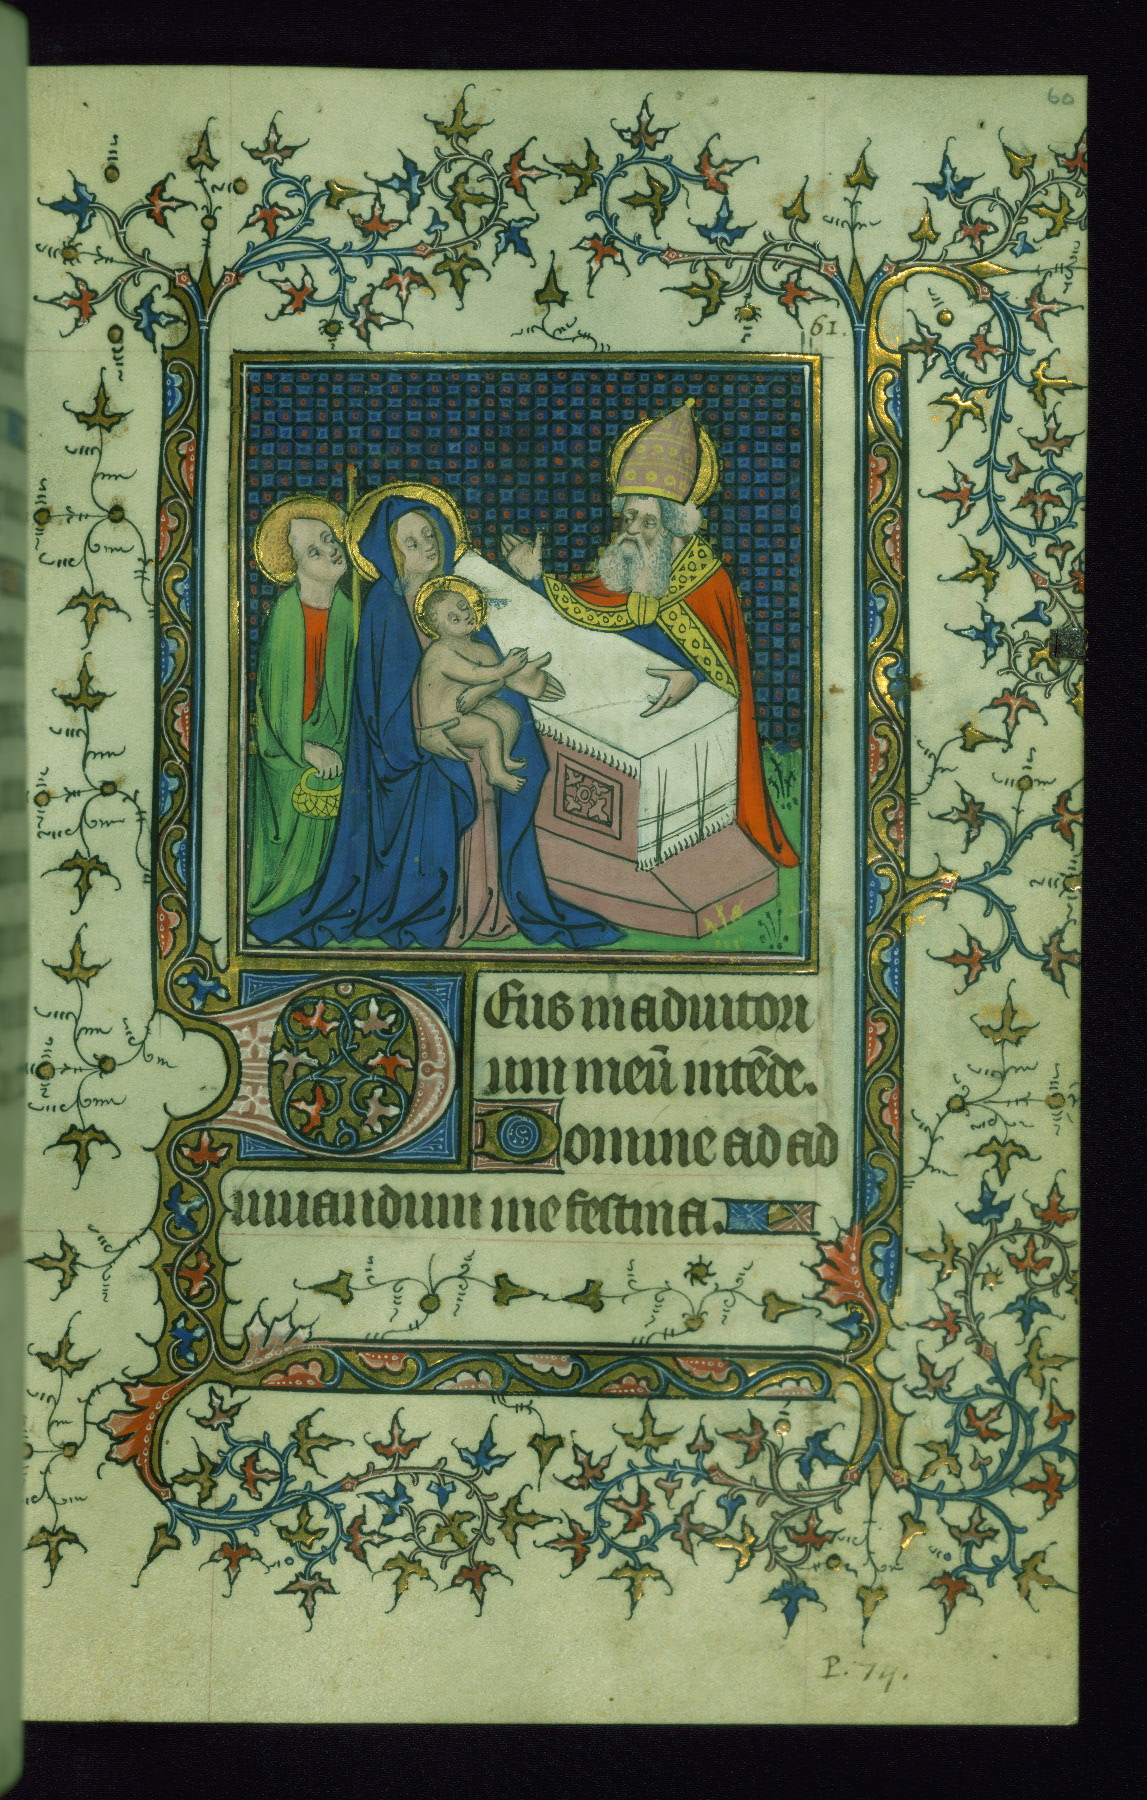 60
61.
Deus in adiutori
um meū intēde.
Domine ad ad
iuuandum me festina.
P. 74.